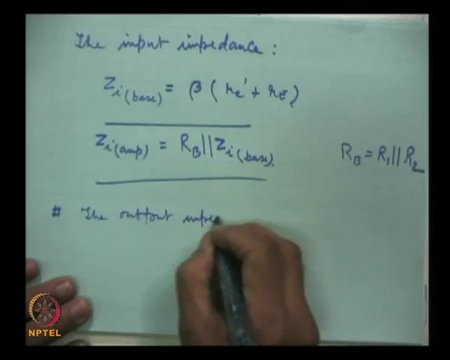 The input impedance :
Zi(base) = β ( re' + rE )
Zi(amp) = RB || Zi(base).
RB = R1 || R2
# The output impe
NPTEL